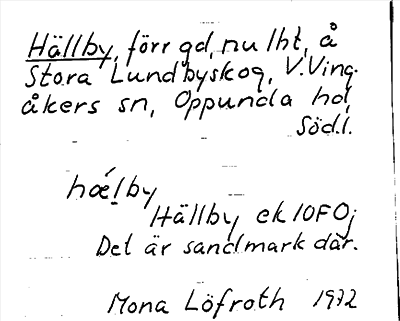 Hällby, förr gd, nu lht, å
Stora Lundbyskog, V.Ving-
åkers sn, Oppunda hd,
Söd.l.
hǽlby
Hällby ek 10F0j
Det är sandmark där.
Mona Löfroth 1972